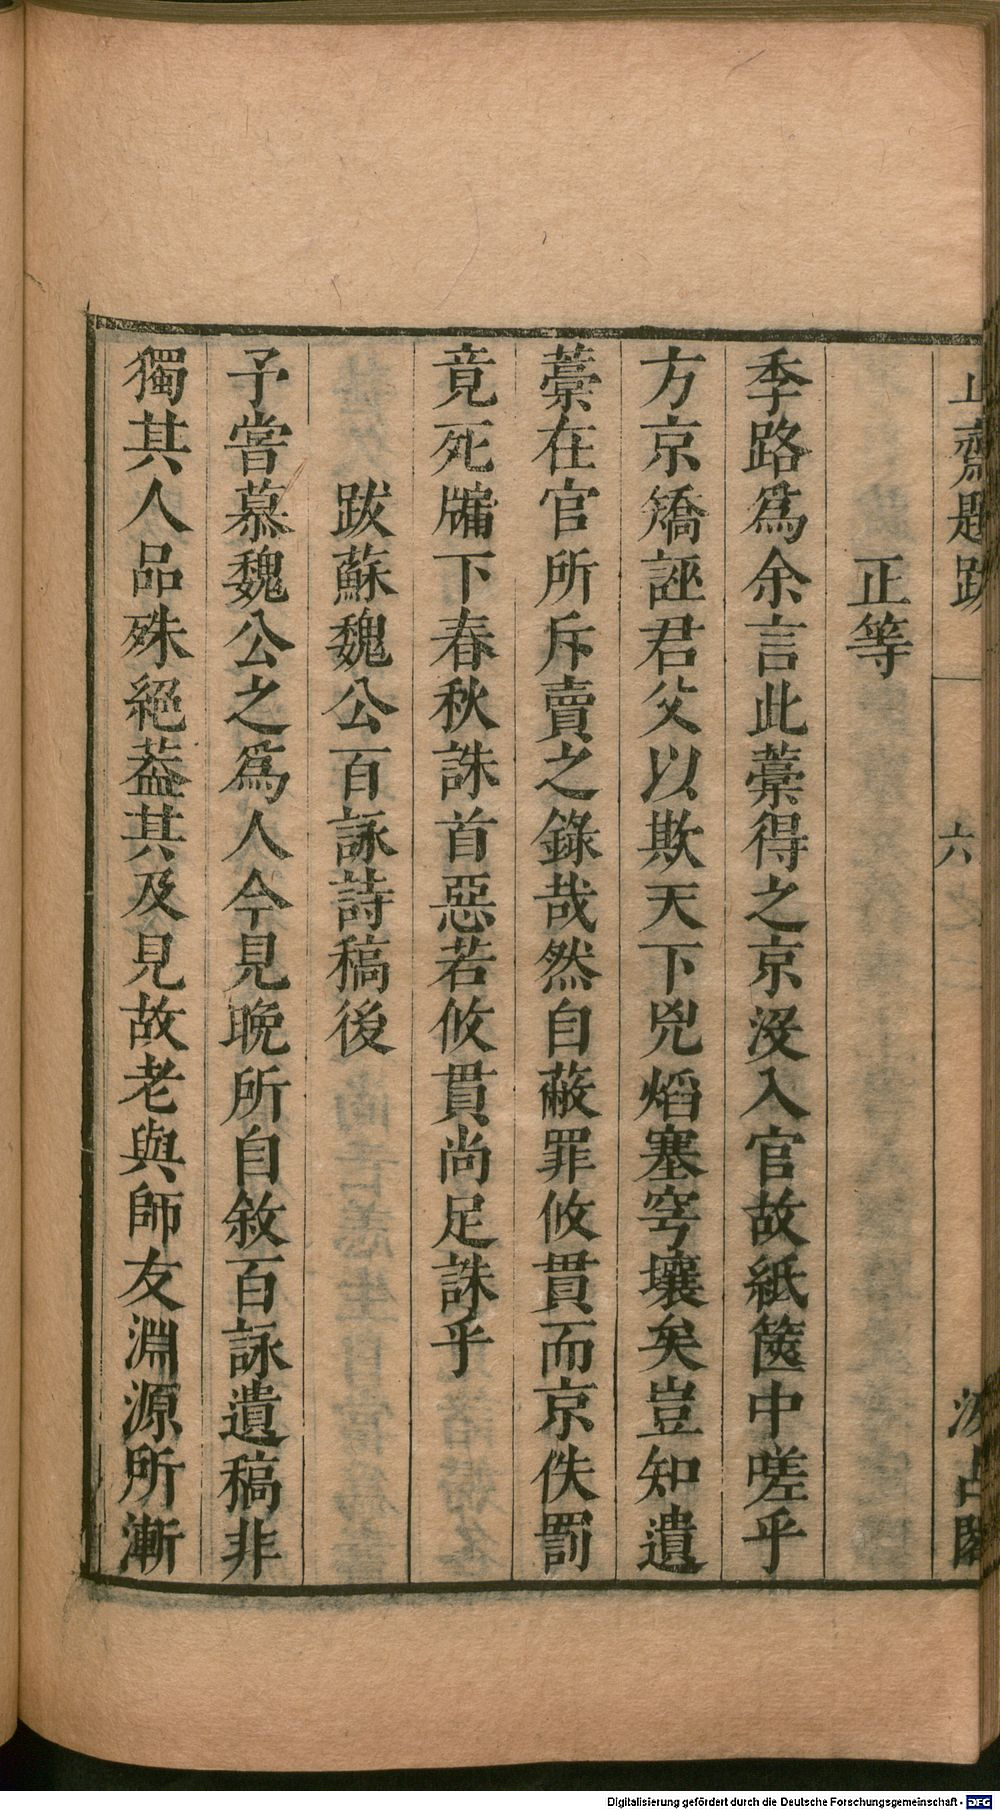 止齋題跋 六 汲古閣
正等
季路爲余言此藁得之京沒入官故紙篋中嗟乎
方京矯誣君父以欺天下兇熖塞穹壤矣豈知遺
藁在官所斥賣之錄哉然自蔽罪攸貫而京佚罰
竟死牖下春秋誅首惡若攸貫尚足誅乎
跋蘇魏公百詠詩稿後
予嘗慕魏公之爲人今見晚所自敘百詠遺稿非
獨其人品殊絕葢其及見故老與師友淵源所漸
Digitalisierung gefördert durch die Deutsche Forschungsgemeinschaft - DFG